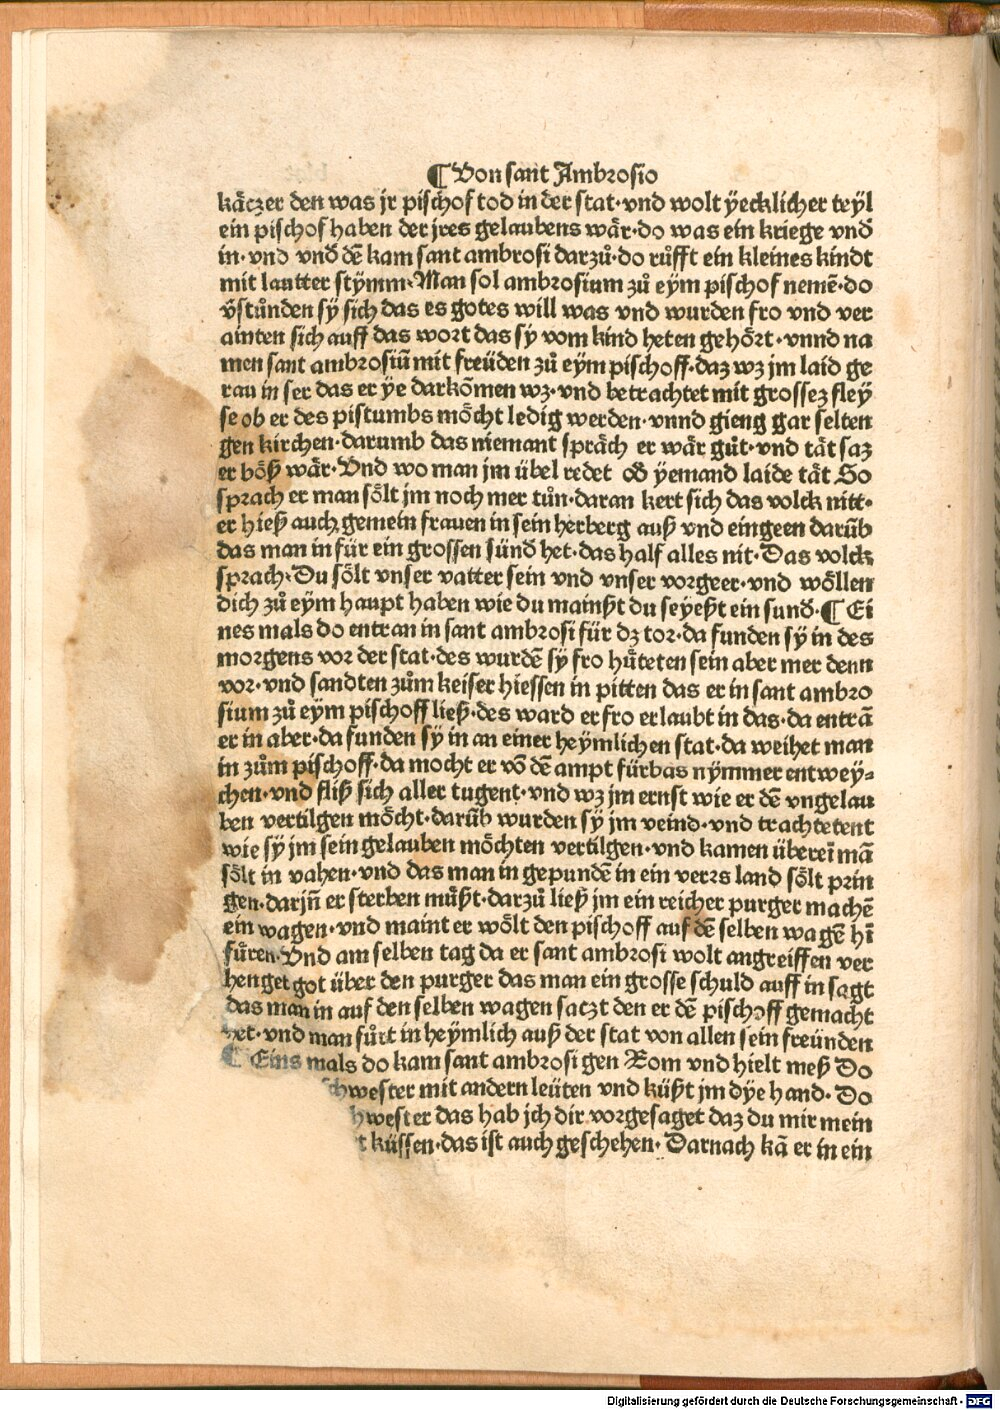 ¶ Von sant Ambrosio
käczer den was jr pischof tod in der stat·vnd wolt ÿecklicher teÿl
ein pischof haben der jres gelaubens wär·do was ein kriege vnd̕
in·vnd vnd̕ dē kam sant ambrosi darzů·do růfft ein kleines kindt
mit lautter stÿmm·Man sol ambrosium zů eým pischof nemē·do
v̄stůnden sÿ sich das es gotes will was vnd wurden fro vnd ver
ainten sich auff das wort das sÿ vom kind heten gehört·vnnd na
men sant ambrosiū mit freüden zů eým pischoff·daz wz jm laid ge
rau in ser das er ÿe darkōmen wz·vnd betrachtet mit grossez fleÿ
se ob er des pistumbs möcht ledig werden·vnnd gieng gar selten
gen kirchen·darumb das niemant spräch er wär gůt·vnd tät saz
er böß wär·Vnd wo man jm übel redet od̕ ÿemand laide tät So
sprach er man sölt jm noch mer tůn·daran kert sich das volck nitt·
er hieß auch gemein frauen in sein herberg auß vnd eingeen darūb
das man in für ein grossen sünd̕ het·das half alles nit·Das volck
sprach·Du sölt vnser vatter sein vnd vnser vorgeer·vnd wöllen
dich zů eým haupt haben wie du mainßt du seÿeßt ein sund̕·¶ Ei
nes mals do entran in sant ambrosi für dz tor·da funden sÿ in des
morgens vor der stat·des wurdē sÿ fro hůteten sein aber mer denn
vor·vnd sandten zům keiser hiessen in pitten das er in sant ambro
sium zů eým pischoff ließ·des ward er fro erlaubt in das·da entrā
er in aber·da funden sÿ in an einer heýmlichen stat·da weihet man
in zům pischoff·da mocht er vō dē ampt fürbas nýmmer entweÿ-
chen·vnd fliß sich aller tugent·vnd wz jm ernst wie er dē vngelau
ben vertilgen möcht·darūb wurden sÿ jm veind·vnd trachtetent
wie sÿ jm sein gelauben möchten vertilgen·vnd kamen übereī mā
sölt in vahen·vnd das man in gepundē in ein verrs land sölt prin
gen·darjn̄ er sterben můßt·darzů ließ jm ein reicher purger machē
ein wagen·vnd maint er wölt den pischoff auf dē selben wagē hī
fůren·Vnd am selben tag da er sant ambrosi wolt angreiffen ver
henget got über den purger das man ein grosse schuld auff in sagt
das man in auf den selben wagen saczt den er dē pischoff gemacht
het·vnd man fůrt in heýmlich auß der stat von allen sein freünden
¶ Eins mals do kam sant ambrosi gen Rom vnd hielt meß Do
chwester mit andern leüten vnd küßt jm dÿe hand· Do
hwester das hab jch dir vorgesaget daz du mir mein
t küssen·das ist auch geschehen· Darnach kā er in ein
Digitalisierung gefördert durch die Deutsche Forschungsgemeinschaft - DFG